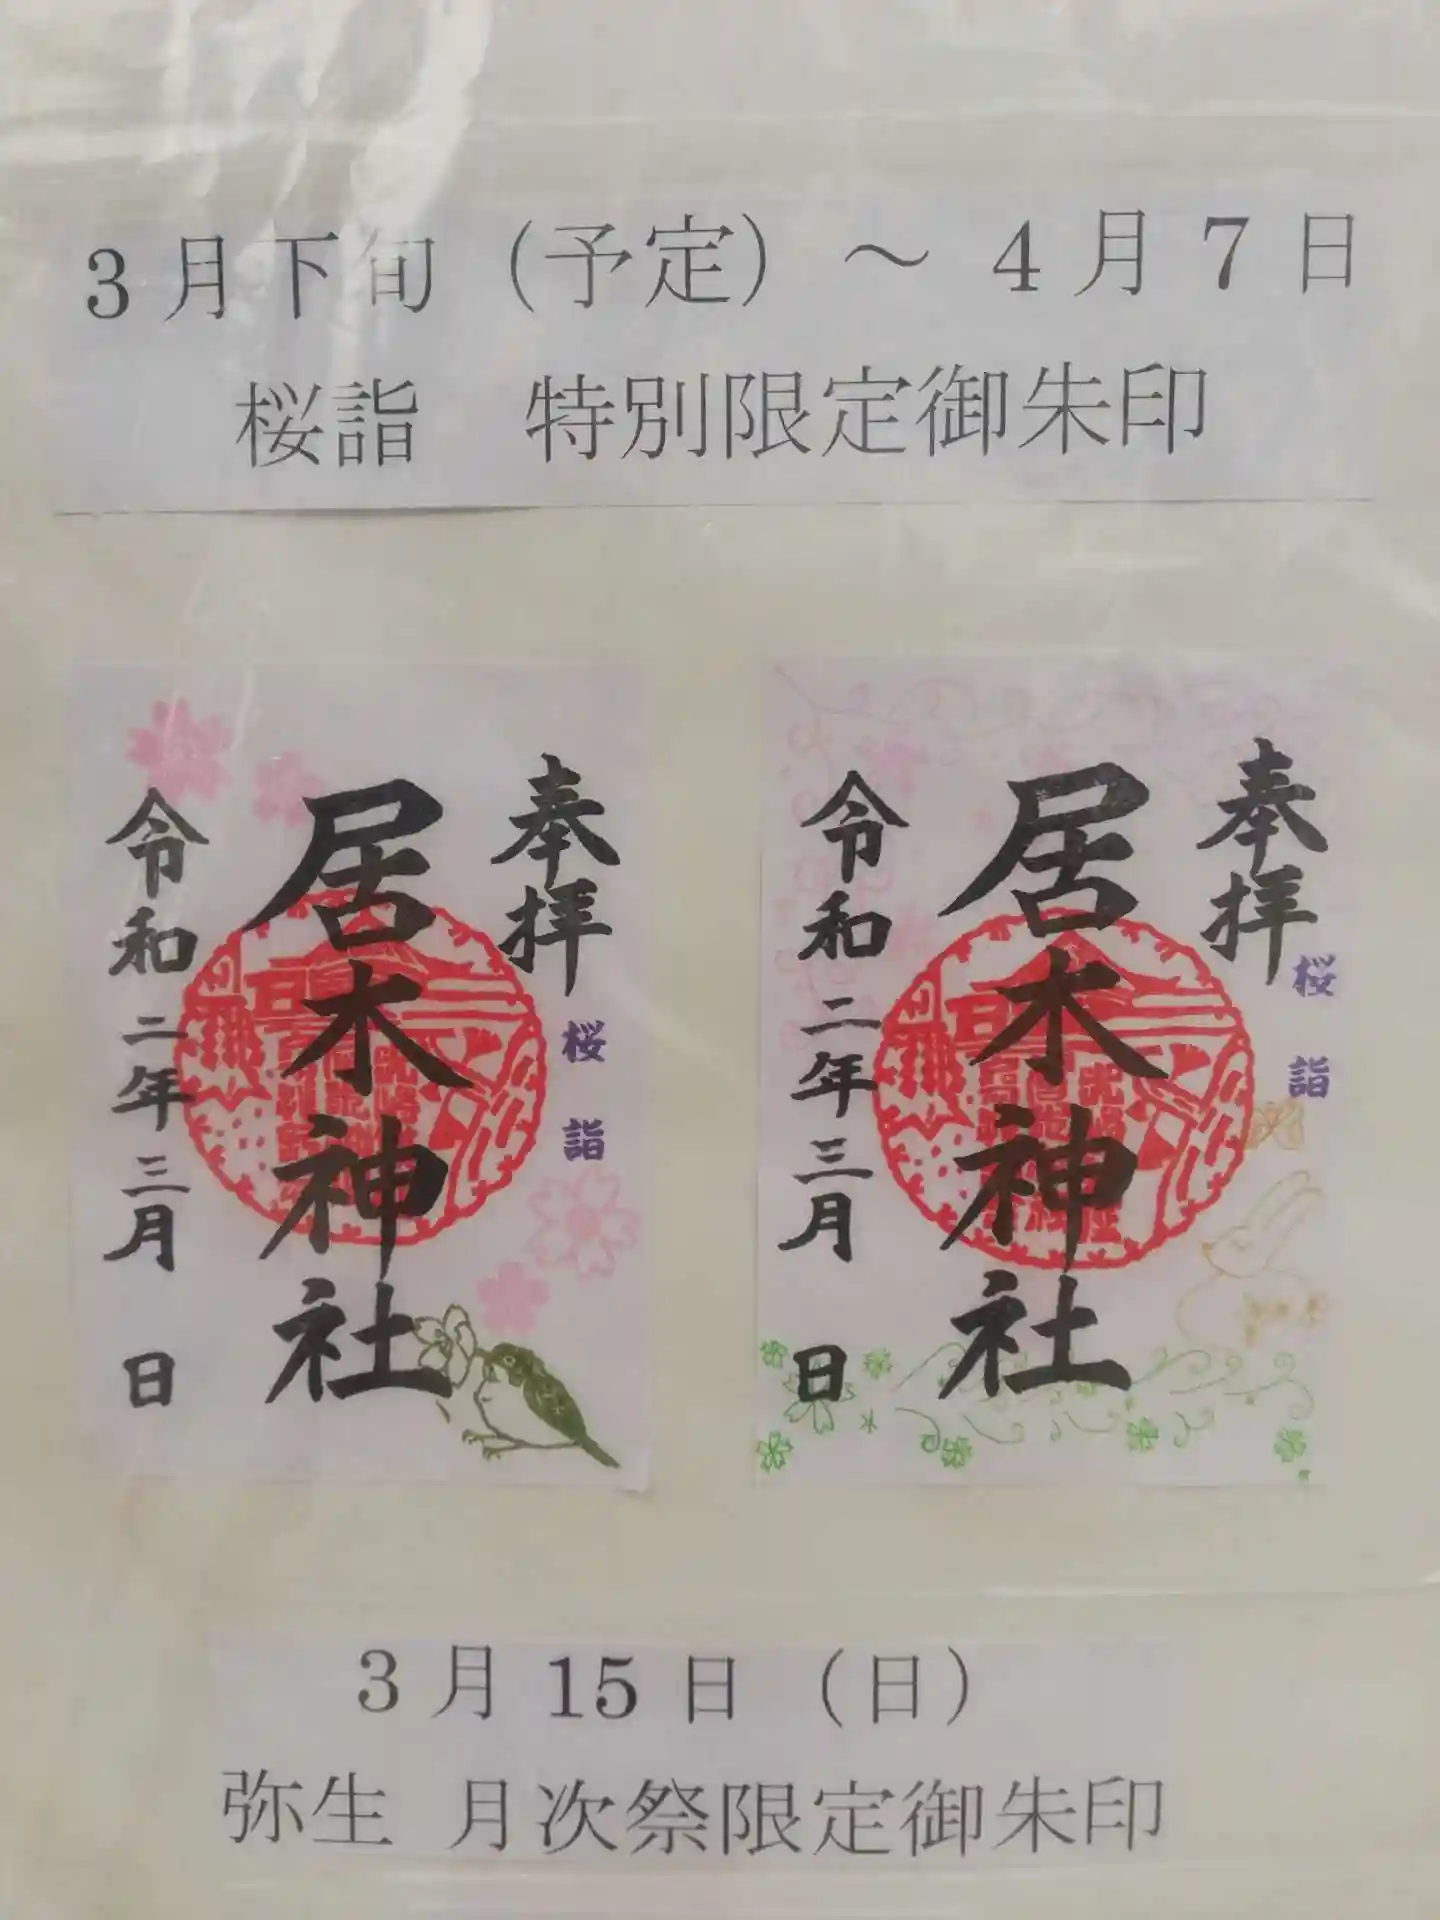 3月下旬（予定）～ 4月7日
桜詣　特別限定御朱印
奉拝
桜詣
居木神社
令和二年三月　日
奉拝
桜詣
居木神社
令和二年三月　日
3月15日（日）
弥生　月次祭限定御朱印